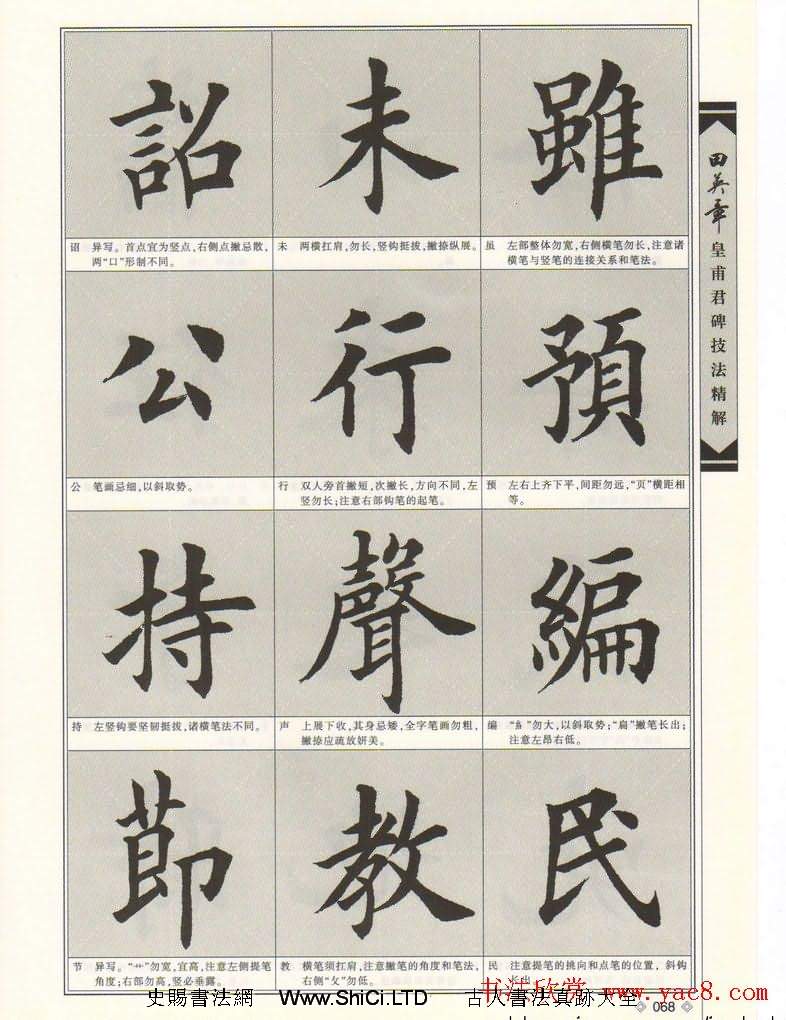 詔
未
雖
诏 异写。首点宜为竖点,右侧点撇忌散,
两“口”形制不同。
未 两横扛肩,勿长,竖钩挺拔,撇捺纵展。
虽 左部整体勿宽,右侧横笔勿长,注意诸
横笔与竖笔的连接关系和笔法。
公
行
預
公 笔画忌细,以斜取势。
行 双人旁首撇短,次撇长,方向不同,左
竖勿长;注意右部钩笔的起笔。
预 左右上齐下平,间距勿远,“页”横距相
等。
持
聲
編
持 左竖钩要坚韧挺拔,诸横笔法不同。
声 上展下收,其身忌矮,全字笔画勿粗,
撇捺应疏放妍美。
编 “糹”勿大,以斜取势;“扁”撇笔长出;
注意左昂右低。
節
教
民
节 异写。“艹”勿宽,宜高,注意左侧提笔
角度;右部勿高,竖必垂露。
教 横笔须扛肩,注意撇笔的角度和笔法,
右侧“攵”勿低。
民 注意提笔的挑向和点笔的位置,斜钩
长出
田英章
皇甫君碑技法精解
史賜書法網 Www.ShiCi.LTD 古人書法真跡大全
书法欣赏 www.yac8.com
068